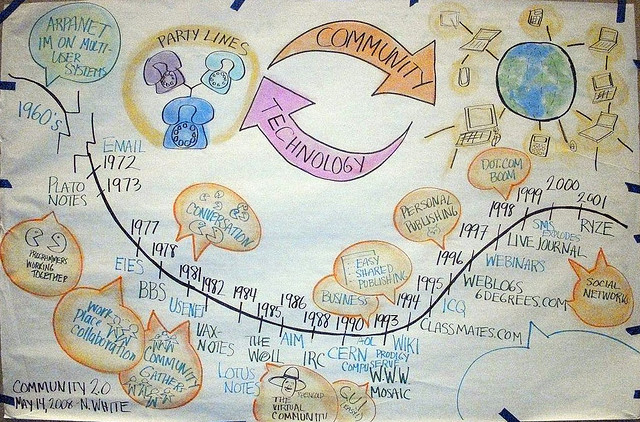 ARPANET
I'M ON MULTI-
USER
SYSTEMS
1960'S
PARTY LINES
COMMUNITY
TECHNOLOGY
EMAIL
1972
PLATO
NOTES
1973
1977
1978
EIES
BBS
1981
1982
USENET
VAX-
NOTES
1984
1985
THE
WELL
LOTUS
NOTES
1986
AIM
1988
IRC
1990
CERN
AOL
COMPUSERVE
PRODIGY
1993
W.W.W
MOSAIC
1994
WIKI
1995
CLASSMATES.COM
ICQ
1996
WEBLOGS
6DEGREES.COM
1997
WEBINARS
1998
LIVE JOURNAL
1999
SMS
EXPLODES
2000
2001
RYZE
PROGRAMMERS
WORKING
TOGETHER
WORK
PLACE
COLLABORATION
COMMUNITY
GATHERS
CONVERSATION
EASY
SHARED
PUBLISHING
BUSINESS
PERSONAL
PUBLISHING
DOT.COM
BOOM
SOCIAL
NETWORKS
THE
VIRTUAL
COMMUNITY
GUI
COMMUNITY 2.0
MAY 14, 2008 - N. WHITE